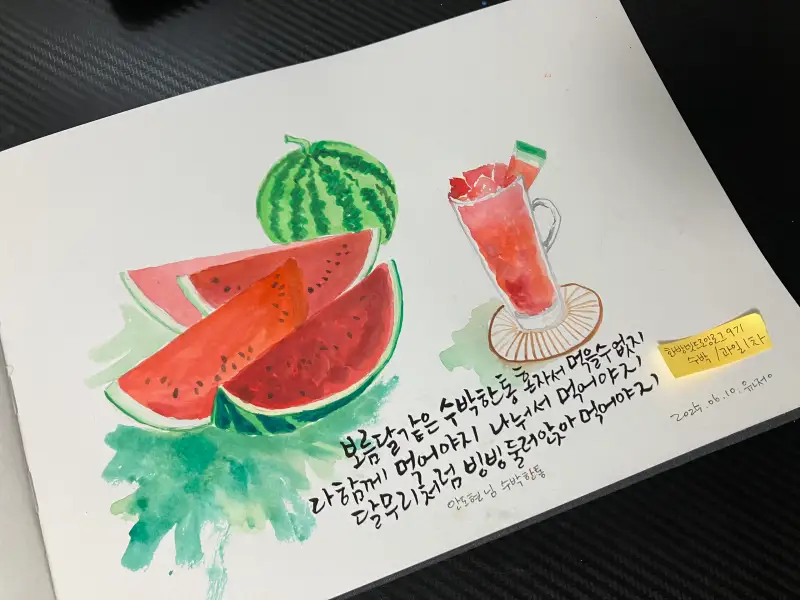 보름달같은 수박한통 혼자서 먹을수 없지
다함께 먹어야지 나눠서 먹어야지
달무리처럼 빙빙 둘러앉아 먹어야지
안도현님 수박한통
수박 / 과일 1차
2025.06.10.